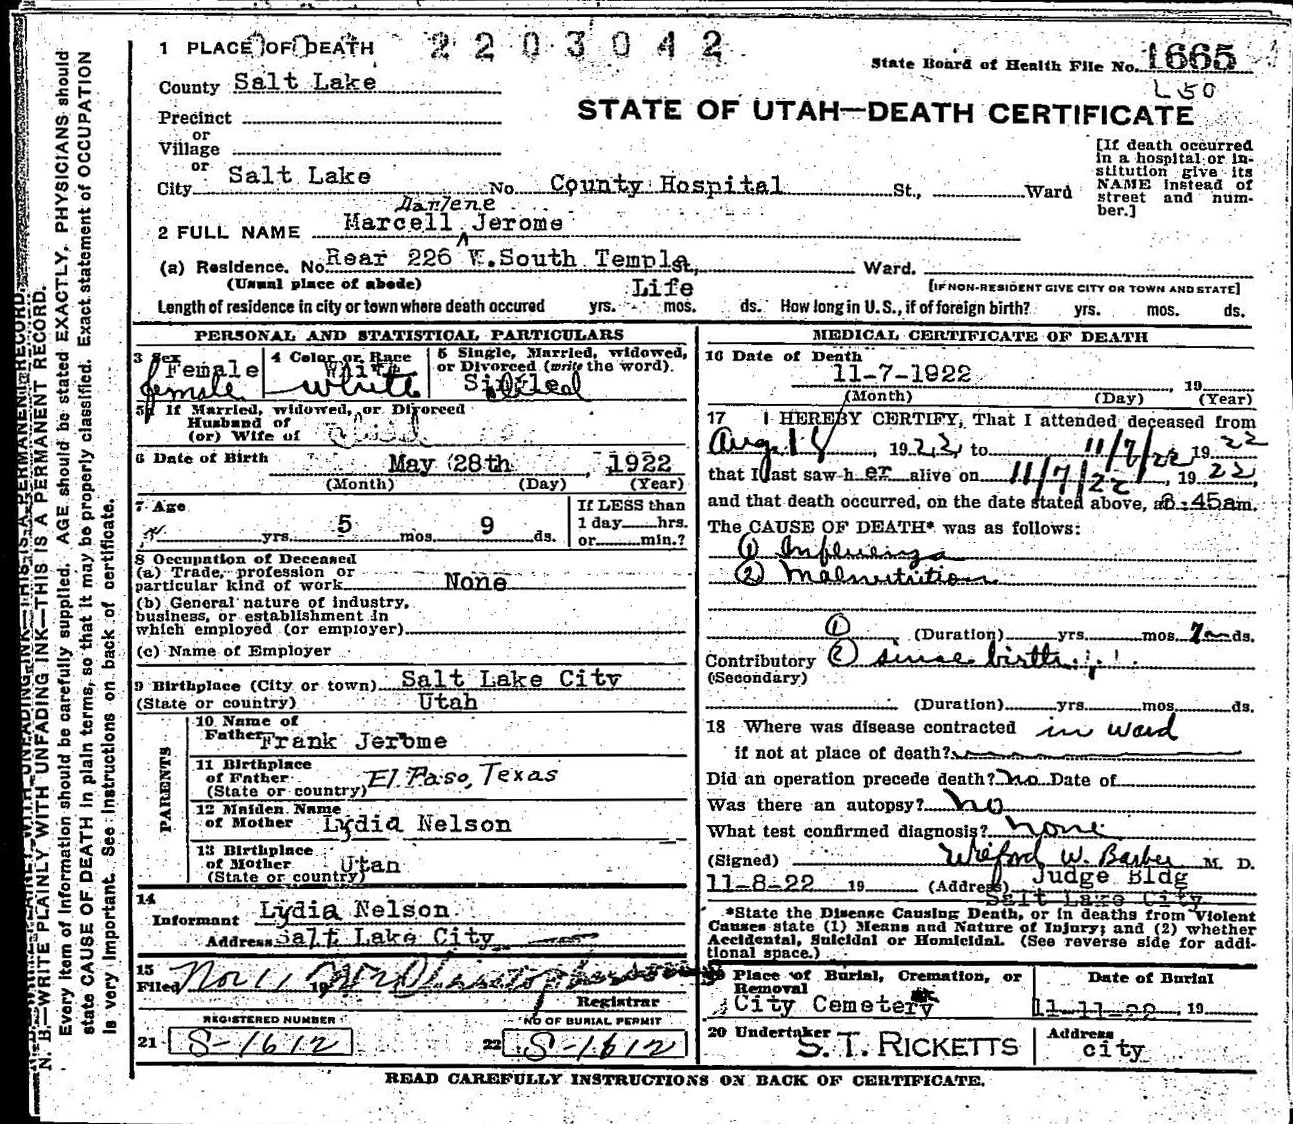 1 PLACE OF DEATH 2203042
State Board of Health File No. 1665
L50
County Salt Lake
STATE OF UTAH—DEATH CERTIFICATE
Precinct
or
Village
or
City Salt Lake No. County Hospital St., Ward
[If death occurred
in a hospital or in-
stitution give its
NAME instead of
street and num-
ber.]
Darlene
2 FULL NAME Marcell Jerome
(a) Residence. No. Rear 226 W. South Temple, Ward.
(Usual place of abode) [IF NON-RESIDENT GIVE CITY OR TOWN AND STATE]
Life
Length of residence in city or town where death occured yrs. mos. ds. How long in U. S., if of foreign birth? yrs. mos. ds.
PERSONAL AND STATISTICAL PARTICULARS
3 Sex
Female
female
4 Color or Race
White
White
5 Single, Married, widowed,
or Divorced (write the word).
5a If Married, widowed, or Divorced
Husband of
(or) Wife of
6 Date of Birth May 28th, 1922
(Month) (Day) (Year)
7 Age
yrs. 5 mos. 9 ds.
If LESS than
1 day hrs.
or min.?
8 Occupation of Deceased
(a) Trade, profession or
particular kind of work None
(b) General nature of industry,
business, or establishment in
which employed (or employer)
(c) Name of Employer
9 Birthplace (City or town) Salt Lake City
(State or country) Utah
PARENTS
10 Name of
Father Frank Jerome
11 Birthplace
of Father El Paso, Texas
(State or country)
12 Maiden Name
of Mother Lydia Nelson
13 Birthplace
of Mother Utah
(State or country)
14
Informant Lydia Nelson
Address Salt Lake City
15
Filed Nov 11 19
Registrar
REGISTERED NUMBER NO OF BURIAL PERMIT
21 S-1612 22 S-1612
MEDICAL CERTIFICATE OF DEATH
16 Date of Death
11-7-1922 19
(Month) (Day) (Year)
17 I HEREBY CERTIFY, That I attended deceased from
Aug. 18, 1922, to 11/7/22 19 22
that I last saw her alive on 11/7/22, 19 22,
and that death occurred, on the date stated above, at 8:45am.
The CAUSE OF DEATH* was as follows:
(1) Influenza
(2) Malnutrition
(1) (Duration) yrs. mos. 7 ds.
Contributory (2) since birth
(Secondary)
(Duration) yrs. mos. ds.
18 Where was disease contracted in ward
if not at place of death?
Did an operation precede death? no Date of
Was there an autopsy? no
What test confirmed diagnosis? none
(Signed) Wreford W. Barber M. D.
11-8-22 19 (Address) Judge Bldg
Salt Lake City
*State the Disease Causing Death, or in deaths from Violent
Causes state (1) Means and Nature of Injury; and (2) whether
Accidental, Suicidal or Homicidal. (See reverse side for addi-
tional space.)
19 Place of Burial, Cremation, or
Removal
City Cemetery
Date of Burial
11-11-22, 19
20 Undertaker
S. T. RICKETTS
Address
city
READ CAREFULLY INSTRUCTIONS ON BACK OF CERTIFICATE.
N. B.—WRITE PLAINLY WITH UNFADING INK—THIS IS A PERMANENT RECORD.
Every item of information should be carefully supplied. AGE should be stated EXACTLY, PHYSICIANS should
state CAUSE OF DEATH in plain terms, so that it may be properly classified. Exact statement of OCCUPATION
is very important. See instructions on back of certificate.